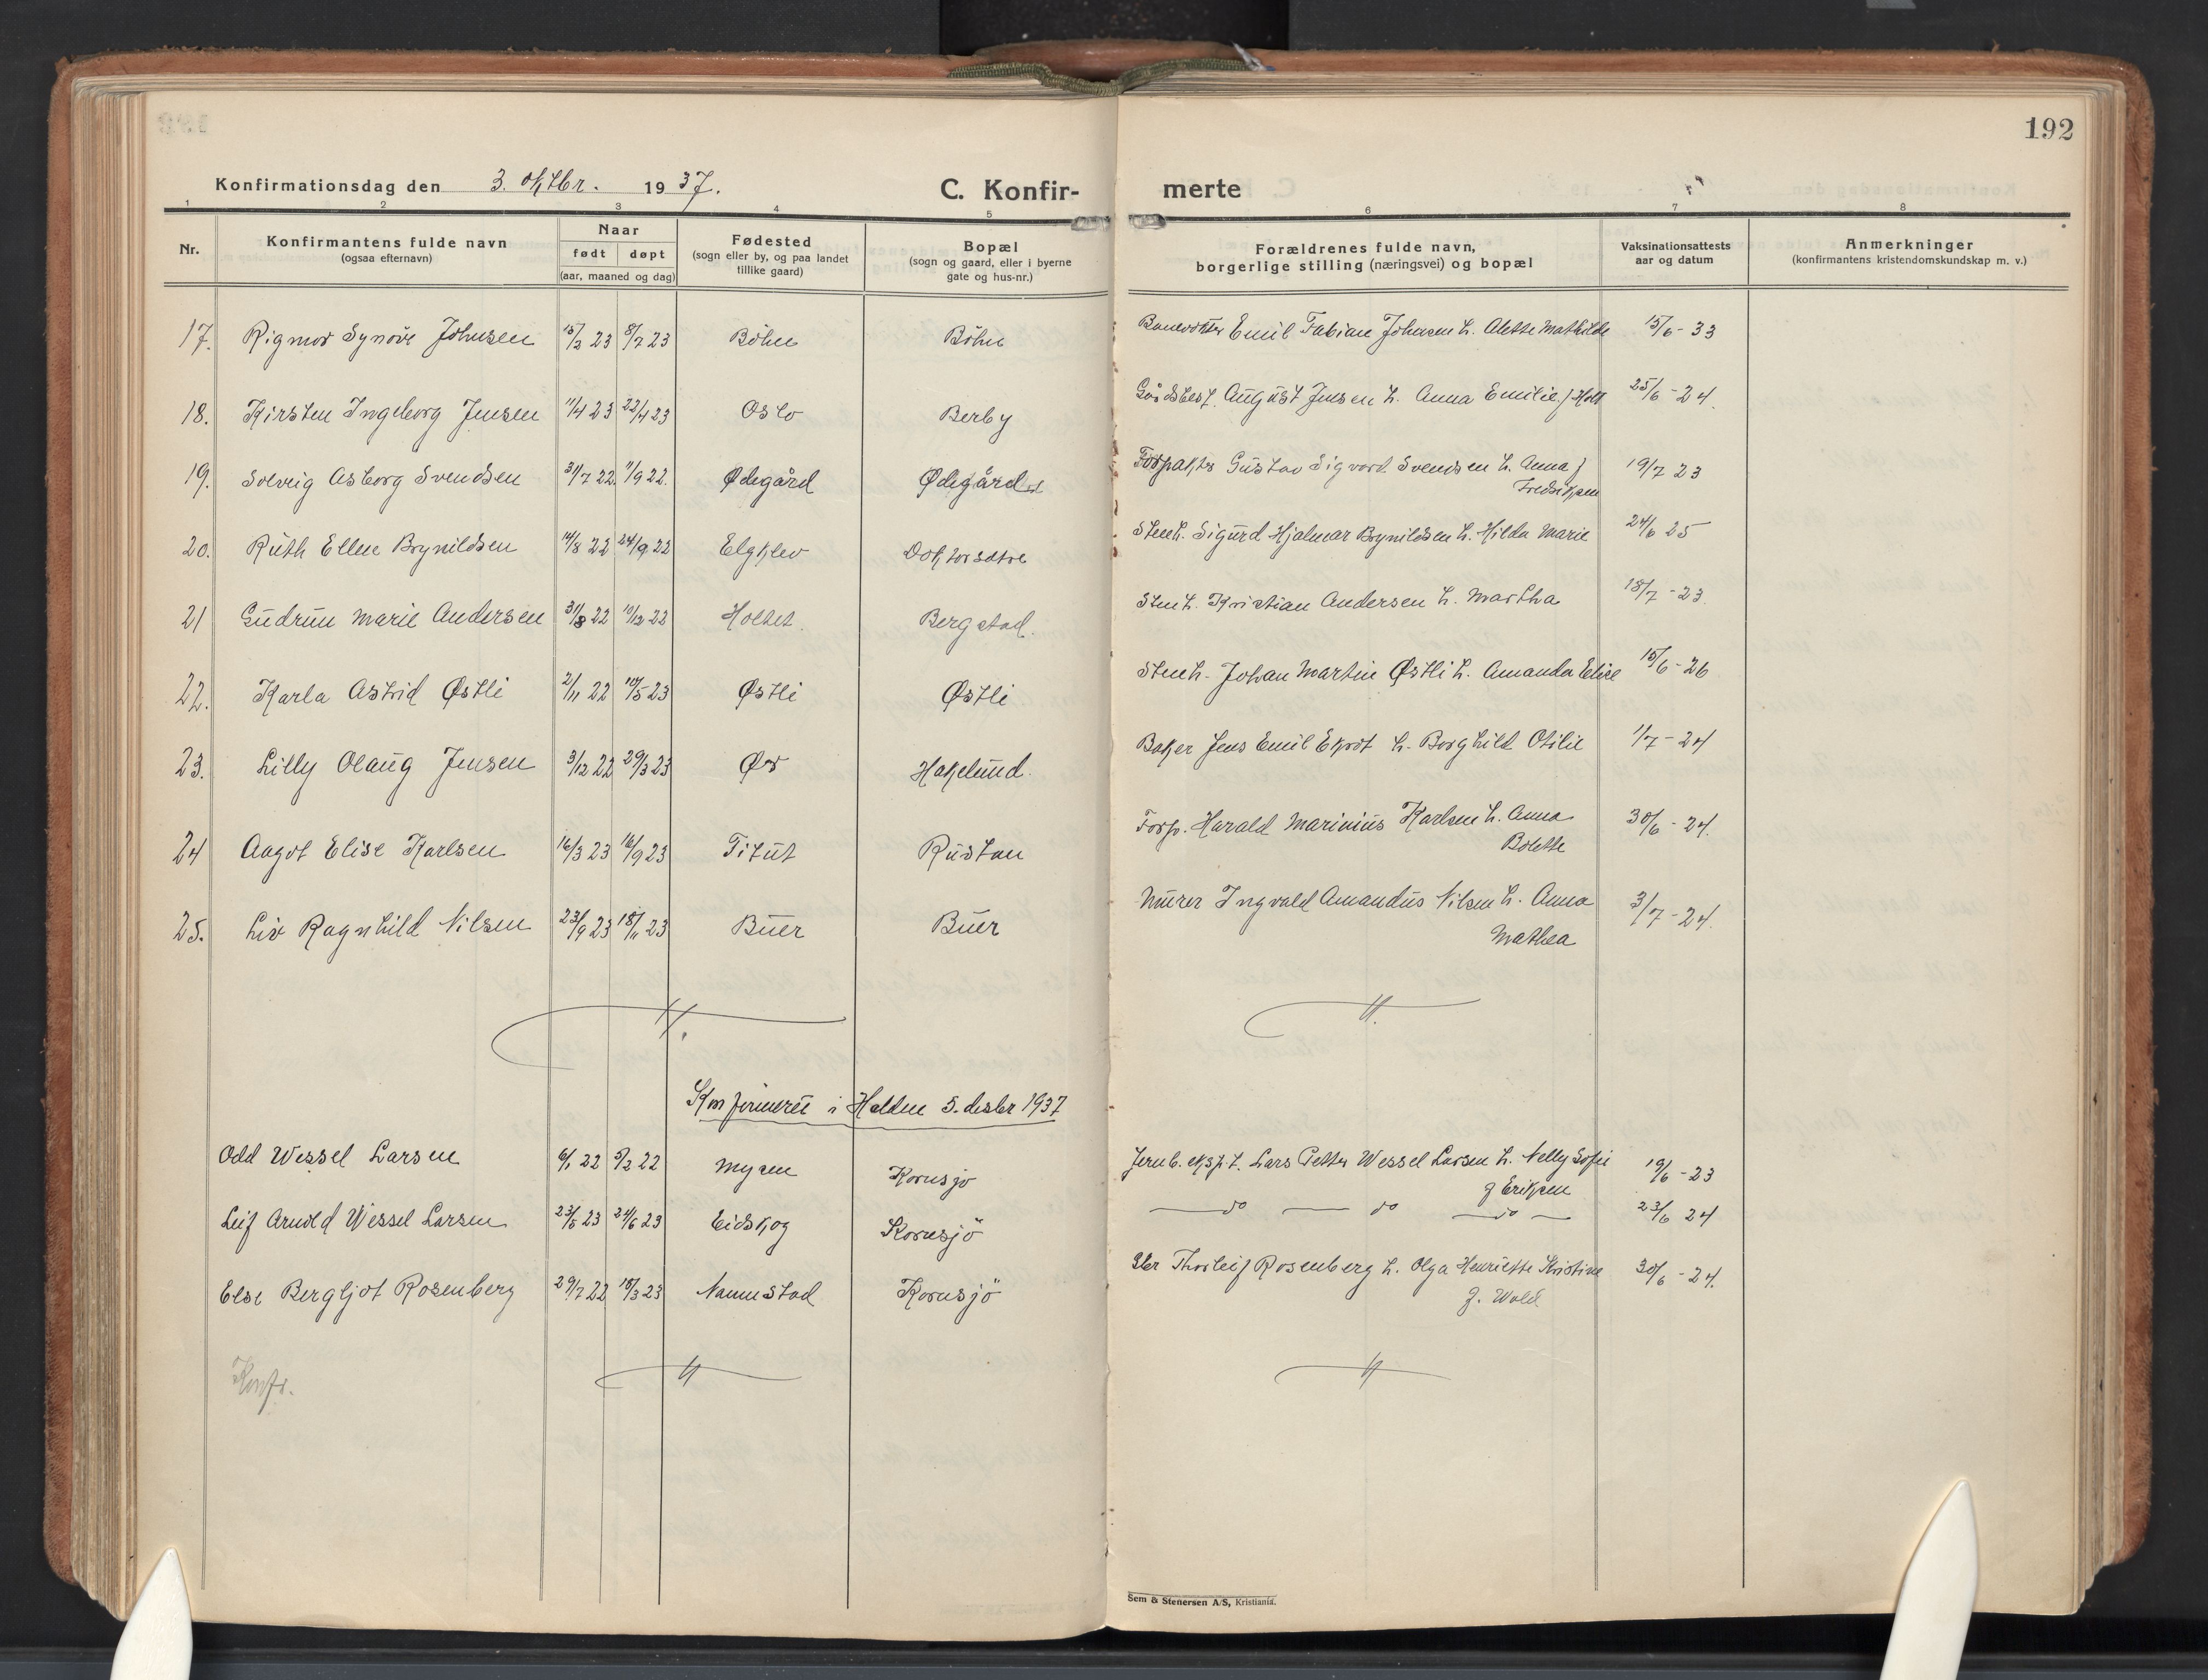 192
Konfirmationsdag den 3. oktbr. 1937.
C. Konfir- merte
1 2 3 4 5 6 7 8
Nr. | Konfirmantens fulde navn (ogsaa efternavn) | Naar født døpt (aar, maaned og dag) | Fødested (sogn eller by, og paa landet tillike gaard) | Bopæl (sogn og gaard, eller i byerne gate og hus-nr.) | Forældrenes fulde navn, borgerlige stilling (næringsvei) og bopæl | Vaksinationsattests aar og datum | Anmerkninger (konfirmantens kristendomskundskap m. v.)
17. Rigmor Synøve Johnsen 15/2 23 8/7 23 Böhn Böhn Banevokter Emil Fabian Johnsen h. Alette Mathilde 15/6 - 33
18. Kirsten Ingeborg Jensen 11/4 23 22/4 23 Oslo Berby Gårdsbest. August Jensen h. Anna Emilie f Holt 25/6 - 24.
19. Solveig Asborg Svendsen 31/7 22 11/9 22. Ødegård Ødegård Forpakter Gustav Sigvard Svendsen h. Anna f 19/7 23
Fredriksen
20. Ruth Ellen Brynildsen 14/8 22 24/9 22 Elgklev Doktorsætre Stenh. Sigurd Hjalmar Brynildsen h. Hilda Marie 24/6 25
21 Gudrun Marie Andersen 31/8 22 10/12 22 Holtet. Bergstad. Stenh. Kristian Andersen h. Martha 18/7 - 23.
22. Karla Astrid Østli 2/11 22 10/5 23 Østli Østli Stenh. Johan Martin Østli h. Amanda Elise 15/6 - 26
23. Lilly Olaug Jensen 3/12 22 29/3 23 Ør Hakelund. Baker Jens Emil Ekrot h. Borghild Otilie 1/7 - 24
24 Aagot Elise Karlsen 16/3 23 16/9 23 Titut Rustan Forp. Harald Marinius Karlsen h. Anna 30/6 - 24.
Bolette
25. Liv Ragnhild Nilsen 23/9 23 18/11 23 Buer Buer Murer Ingvald Amandus Nilsen h. Anna 3/7 - 24.
Mathea
Konfirmeret i Halden 5. desbr 1937
Odd Wessel Larsen 6/1 22 5/2 22 Mysen Kornsjö Jernb. eksp. t. Lars Petter Wessel Larsen h. Nelly Sofie 19/6 - 23
f Eriksen
Leif Arnold Wessel Larsen 23/5 23 24/6 23 Eidskog Kornsjö do do do 23/6 24
Else Bergljot Rosenberg 29/7 22 18/3 23 Nannestad Kornsjö Thorleif Rosenberg h. Olga Henriette Kristine 30/6 - 24.
f. Wold
Konfr.
Sem & Stenersen A/S, Kristiania.